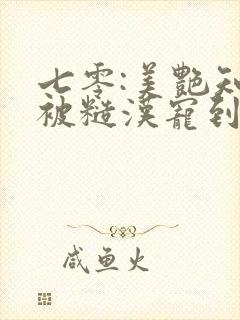 七零:美艷知
被糙漢寵到
咸鱼火